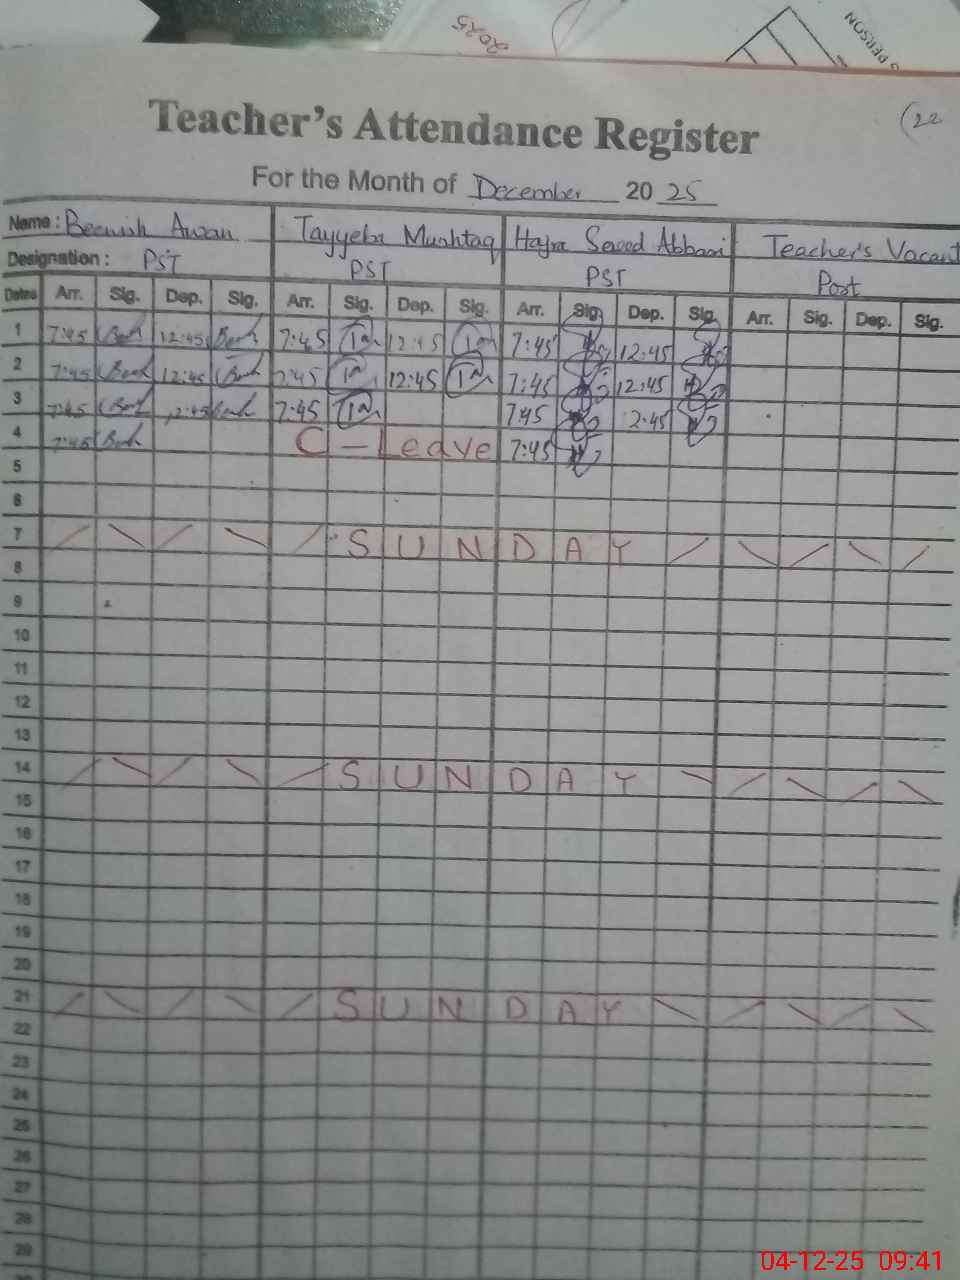 2025
PERSON
(22
Teacher's Attendance Register
For the Month of December 20 25
Name : Beenish Awan Tayyeba Mushtaq Hajra Saeed Abbasi Teacher's Vacant
Designation : PST PST PST Post
Dates Arr. Sig. Dep. Sig. Arr. Sig. Dep. Sig. Arr. Sig. Dep. Sig. Arr. Sig. Dep. Sig.
1 7:45 12:45 7:45 12:45 7:45 12:45
2 7:45 12:45 7:45 12:45 7:45 12:45
3 7:45 2:45 7:45 7:45 2:45
4 7:45 C - Leave 7:45
5
6
7 SUNDAY
8
9
10
11
12
13
14 SUNDAY
15
16
17
18
19
20
21 SUNDAY
22
23
24
25
26
27
28
29
04-12-25 09:41